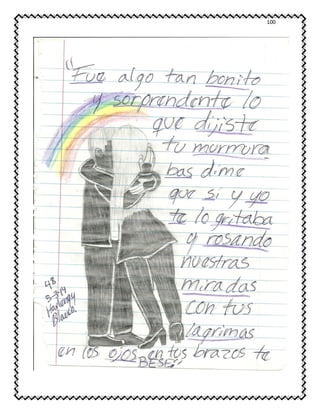 100
"Fue algo tan bonito
y sorprendente lo
que dijiste
tu murmura
bas dime
que si y yo
te lo gritaba
y rosando
nuestras
miradas
con tus
lagrimas
en los ojos en tus brazos te
BESE"
48
5-3-19
Blanca